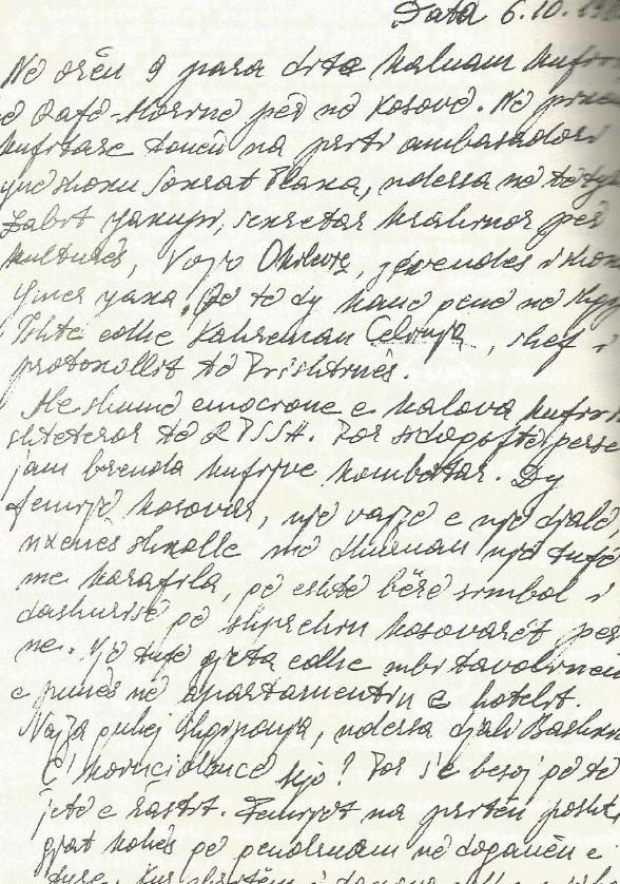 Data 6.10.
Në orën 9 para dite kaluam kufir
Qafë-Morinë për në Kosovë. Në
kufitare tonën na priti ambasadori
ynë shoku Sokrat Plaka, ndersa në
Zabit Yakupi, sekretar krahinor për
kulturës, Vojo, zëvendës i
Ymer Yaka. Që të dy kanë qenë në
Ishte edhe Kahreman, shef i
protokollit të Prishtinës.
Me shumë emocione e kalova kufir
shtetëror të RPSSH. Por sidoqoftë
jam brenda kufijve kombëtar. Dy
femijë kosovar, një vajzë e një djalë,
nxenës shkolle më dhuruan një tufë
me karafila, që eshtë bërë simbol i
dashurisë që shprehin kosovarët per
ne. Një tufë gjeta edhe mbi tavolinën
e punës në apartamentin e hotelit.
Vajza quhej Shqiponja, ndersa djali Bashkim
Ç' koinciolencë kjo! Por s'e besoj që të
jetë e rastit. Femijet na pritën poshtë
gjat kohës që qendruam në doganën e